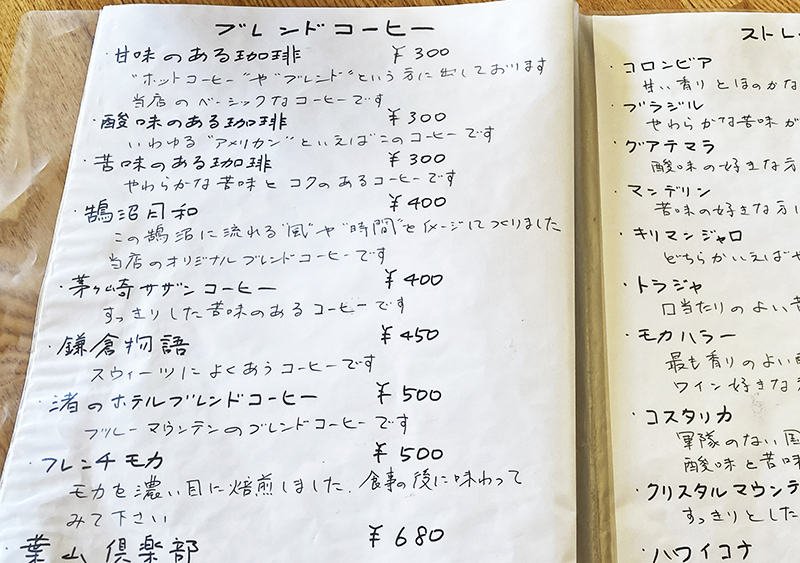 ブレンドコーヒー
・甘味のある珈琲 ¥300
"ホットコーヒー"や"ブレンド"という方に出しております
当店のベーシックなコーヒーです
・酸味のある珈琲 ¥300
いわゆる"アメリカン"といえばこのコーヒーです
・苦味のある珈琲 ¥300
やわらかな苦味とコクのあるコーヒーです
・鵠沼日和 ¥400
この鵠沼に流れる"風"や"時間"をイメージしてつくりました
当店のオリジナルブレンドコーヒーです
・茅ヶ崎サザンコーヒー ¥400
すっきりした苦味のあるコーヒーです
・鎌倉物語 ¥450
スウィーツによくあうコーヒーです
・渚のホテルブレンドコーヒー ¥500
ブルーマウンテンのブレンドコーヒーです
・フレンチモカ ¥500
モカを濃い目に焙煎しました。食事の後に味わって
みて下さい
・葉山倶楽部 ¥680
ストレ
・コロンビア
甘い香りとほのかな
・ブラジル
やわらかな苦味が
・グアテマラ
酸味の好きな方
・マンデリン
苦味の好きな方
・キリマンジャロ
どちらかいえばや
・トラジャ
口当たりのよい
・モカハラー
最も香りのよい
ワイン好きな
・コスタリカ
軍隊のない国
酸味と苦味
・クリスタルマウンテ
すっきりとした
・ハワイコナ